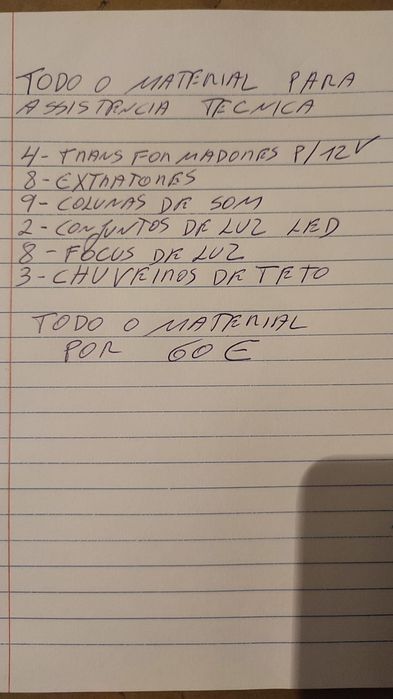 TODO O MATERIAL PARA
ASSISTENCIA TECNICA
4 - TRANSFORMADORES P/12V
8 - EXTRATORES
9 - COLUNAS DE SOM
2 - CONJUNTOS DE LUZ LED
8 - FOCUS DE LUZ
3 - CHUVEIROS DE TETO
TODO O MATERIAL
POR 60 €